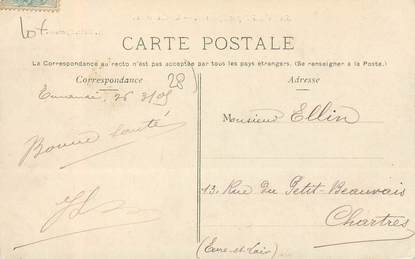 CARTE POSTALE
La Correspondance au recto n'est pas acceptée par tous les pays étrangers. (Se renseigner à la Poste.)
Correspondance
28)
Adresse
26 3/05
Bonne santé
Monsieur Ellin
13. Rue du Petit-Beauvais
Chartres
(Eure-et-Loir)